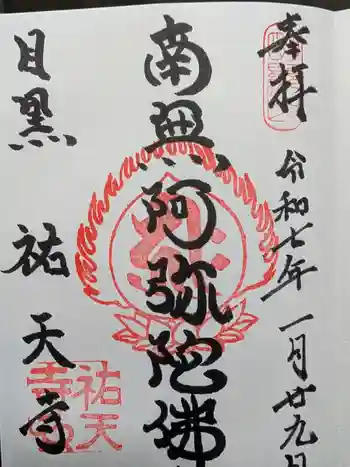 奉拝
令和七年一月廿九日
南無阿弥陀佛
目黒
祐天寺
祐天寺